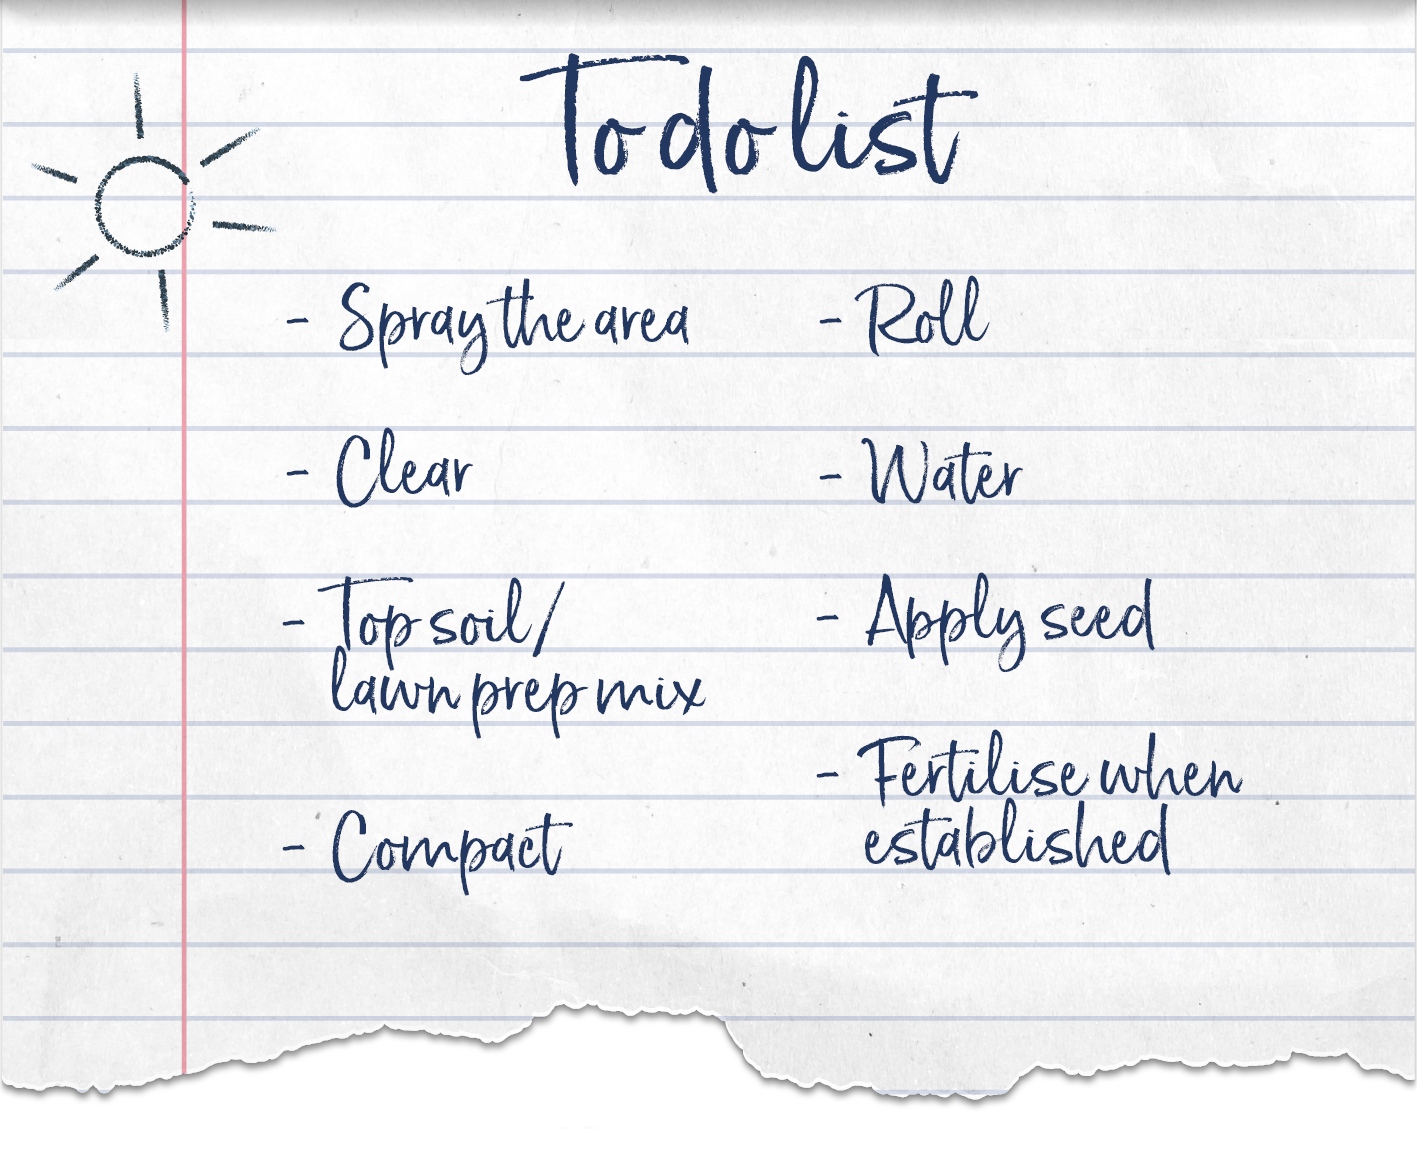 To do list
- Spray the area
- Clear
- Top soil/
lawn prep mix
- Compact
- Roll
- Water
- Apply seed
- Fertilise when
established